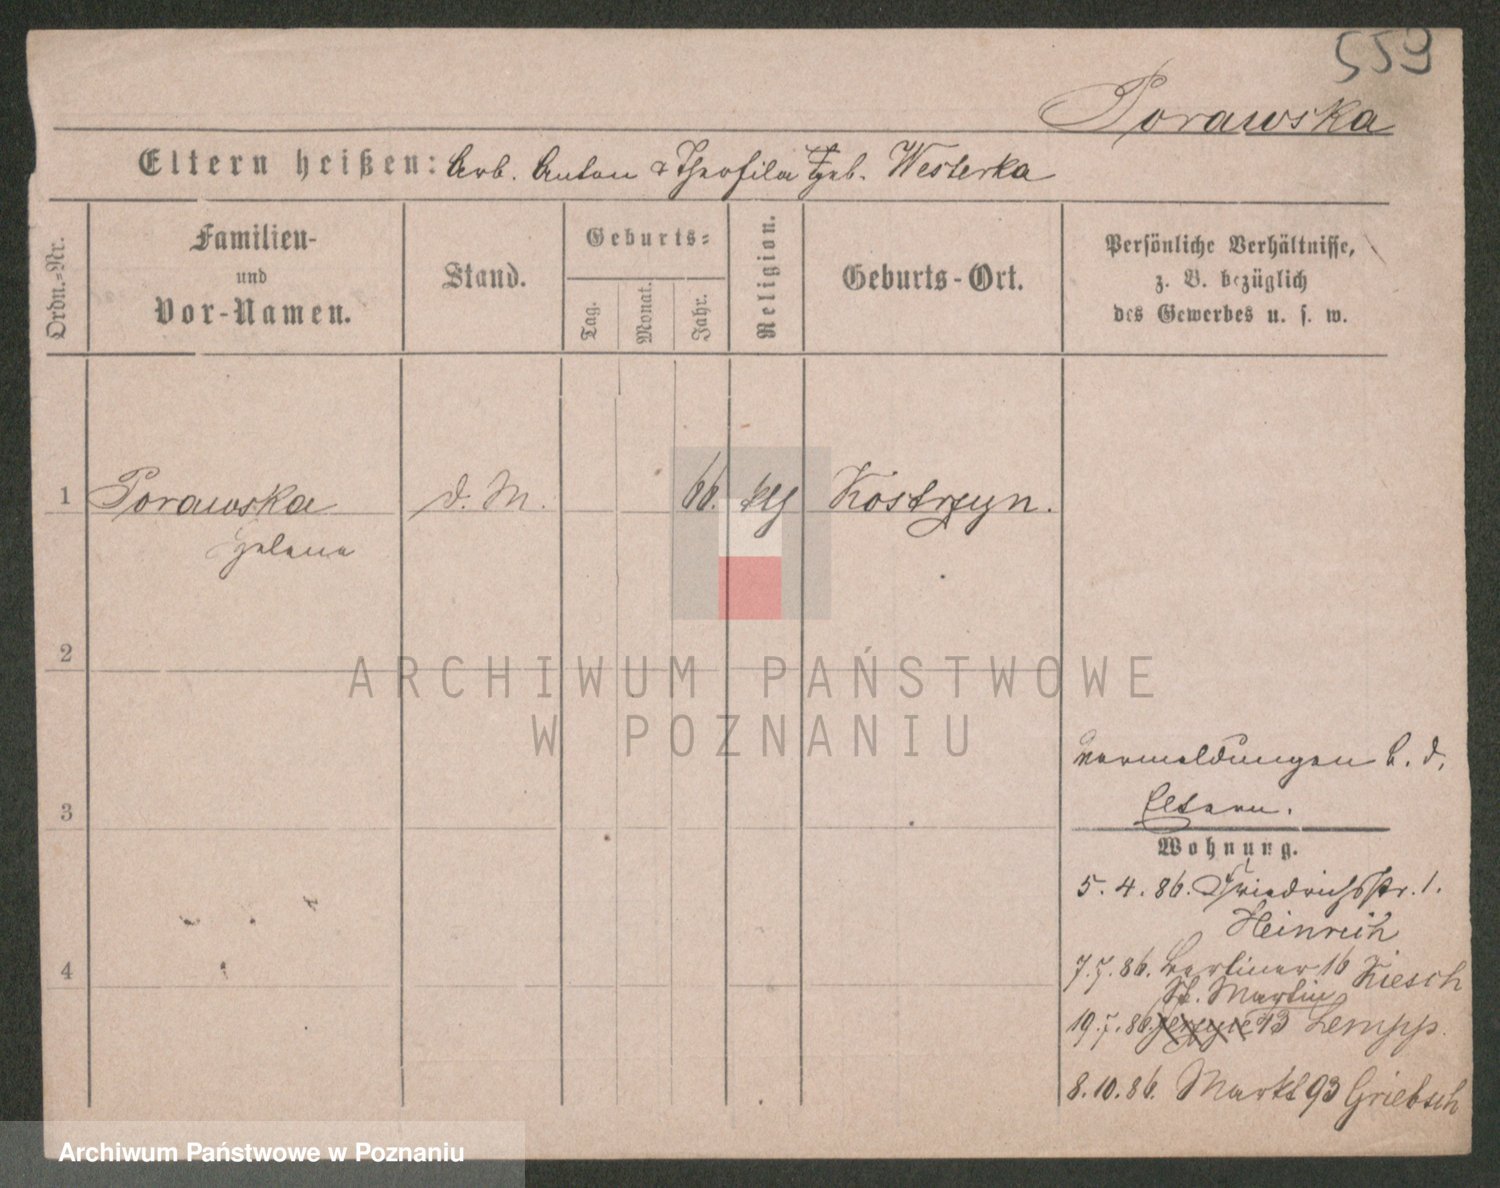 559
Porawska
Eltern heißen: Arb. Anton & Theofila geb. Westerka
Ordn.-Nr.
Familien-
und
Vor-Namen.
Stand.
Geburts-
Tag.
Monat.
Jahr.
Religion.
Geburts-Ort.
Persönliche Verhältnisse,
z. B. bezüglich
des Gewerbes u. s. w.
1 Porawska d. M. 66. klg Kostrzyn.
Helena
2
ARCHIWUM PAŃSTWOWE
W POZNANIU
3
4
Vormeldungen b. d.
Eltern.
Wohnung.
5. 4. 86. Friedrichsstr. 1.
Heinrich
7.7.86. Berliner 16 Kiesch
St. Martin
19.7.86. 93 Lempp.
8.10.86. Markt 93 Griebsch
Archiwum Państwowe w Poznaniu